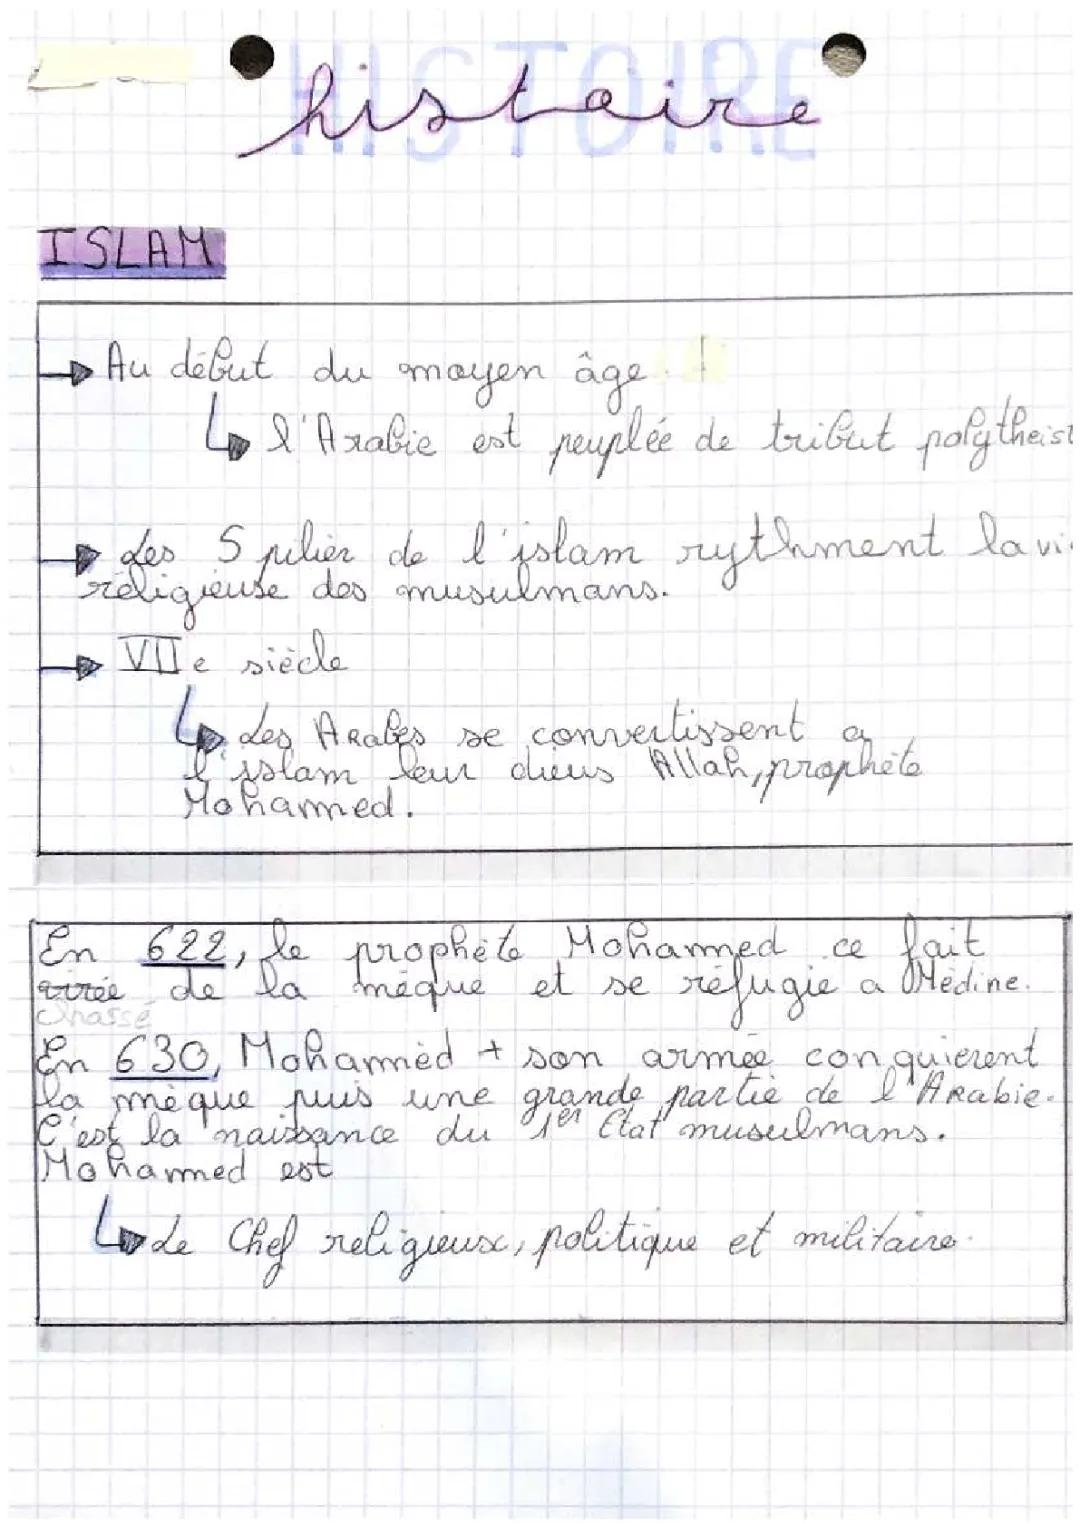 HISTOIRE
histoire
ISLAM
Au début du moyen âge.
l'Arabie est peuplée de tribut polytheist
Les 5 pilier de l'islam rythment la vi
réligieuse des musulmans.
VIIe siècle
Les Arabes se convertissent a
l'islam leur dieus Allah, prophète
Mohammed.
En 622, le prophète Mohammed ce fait
de la mèque et se réfugie a Médine.
Chassé
En 630, Mohammed + son armée conquierent
la mèque puis une grande partie de l'Arabie.
C'est la naissance du 1er État musulmans.
Mohammed est
Le Chef religieuse, politique et militaire.